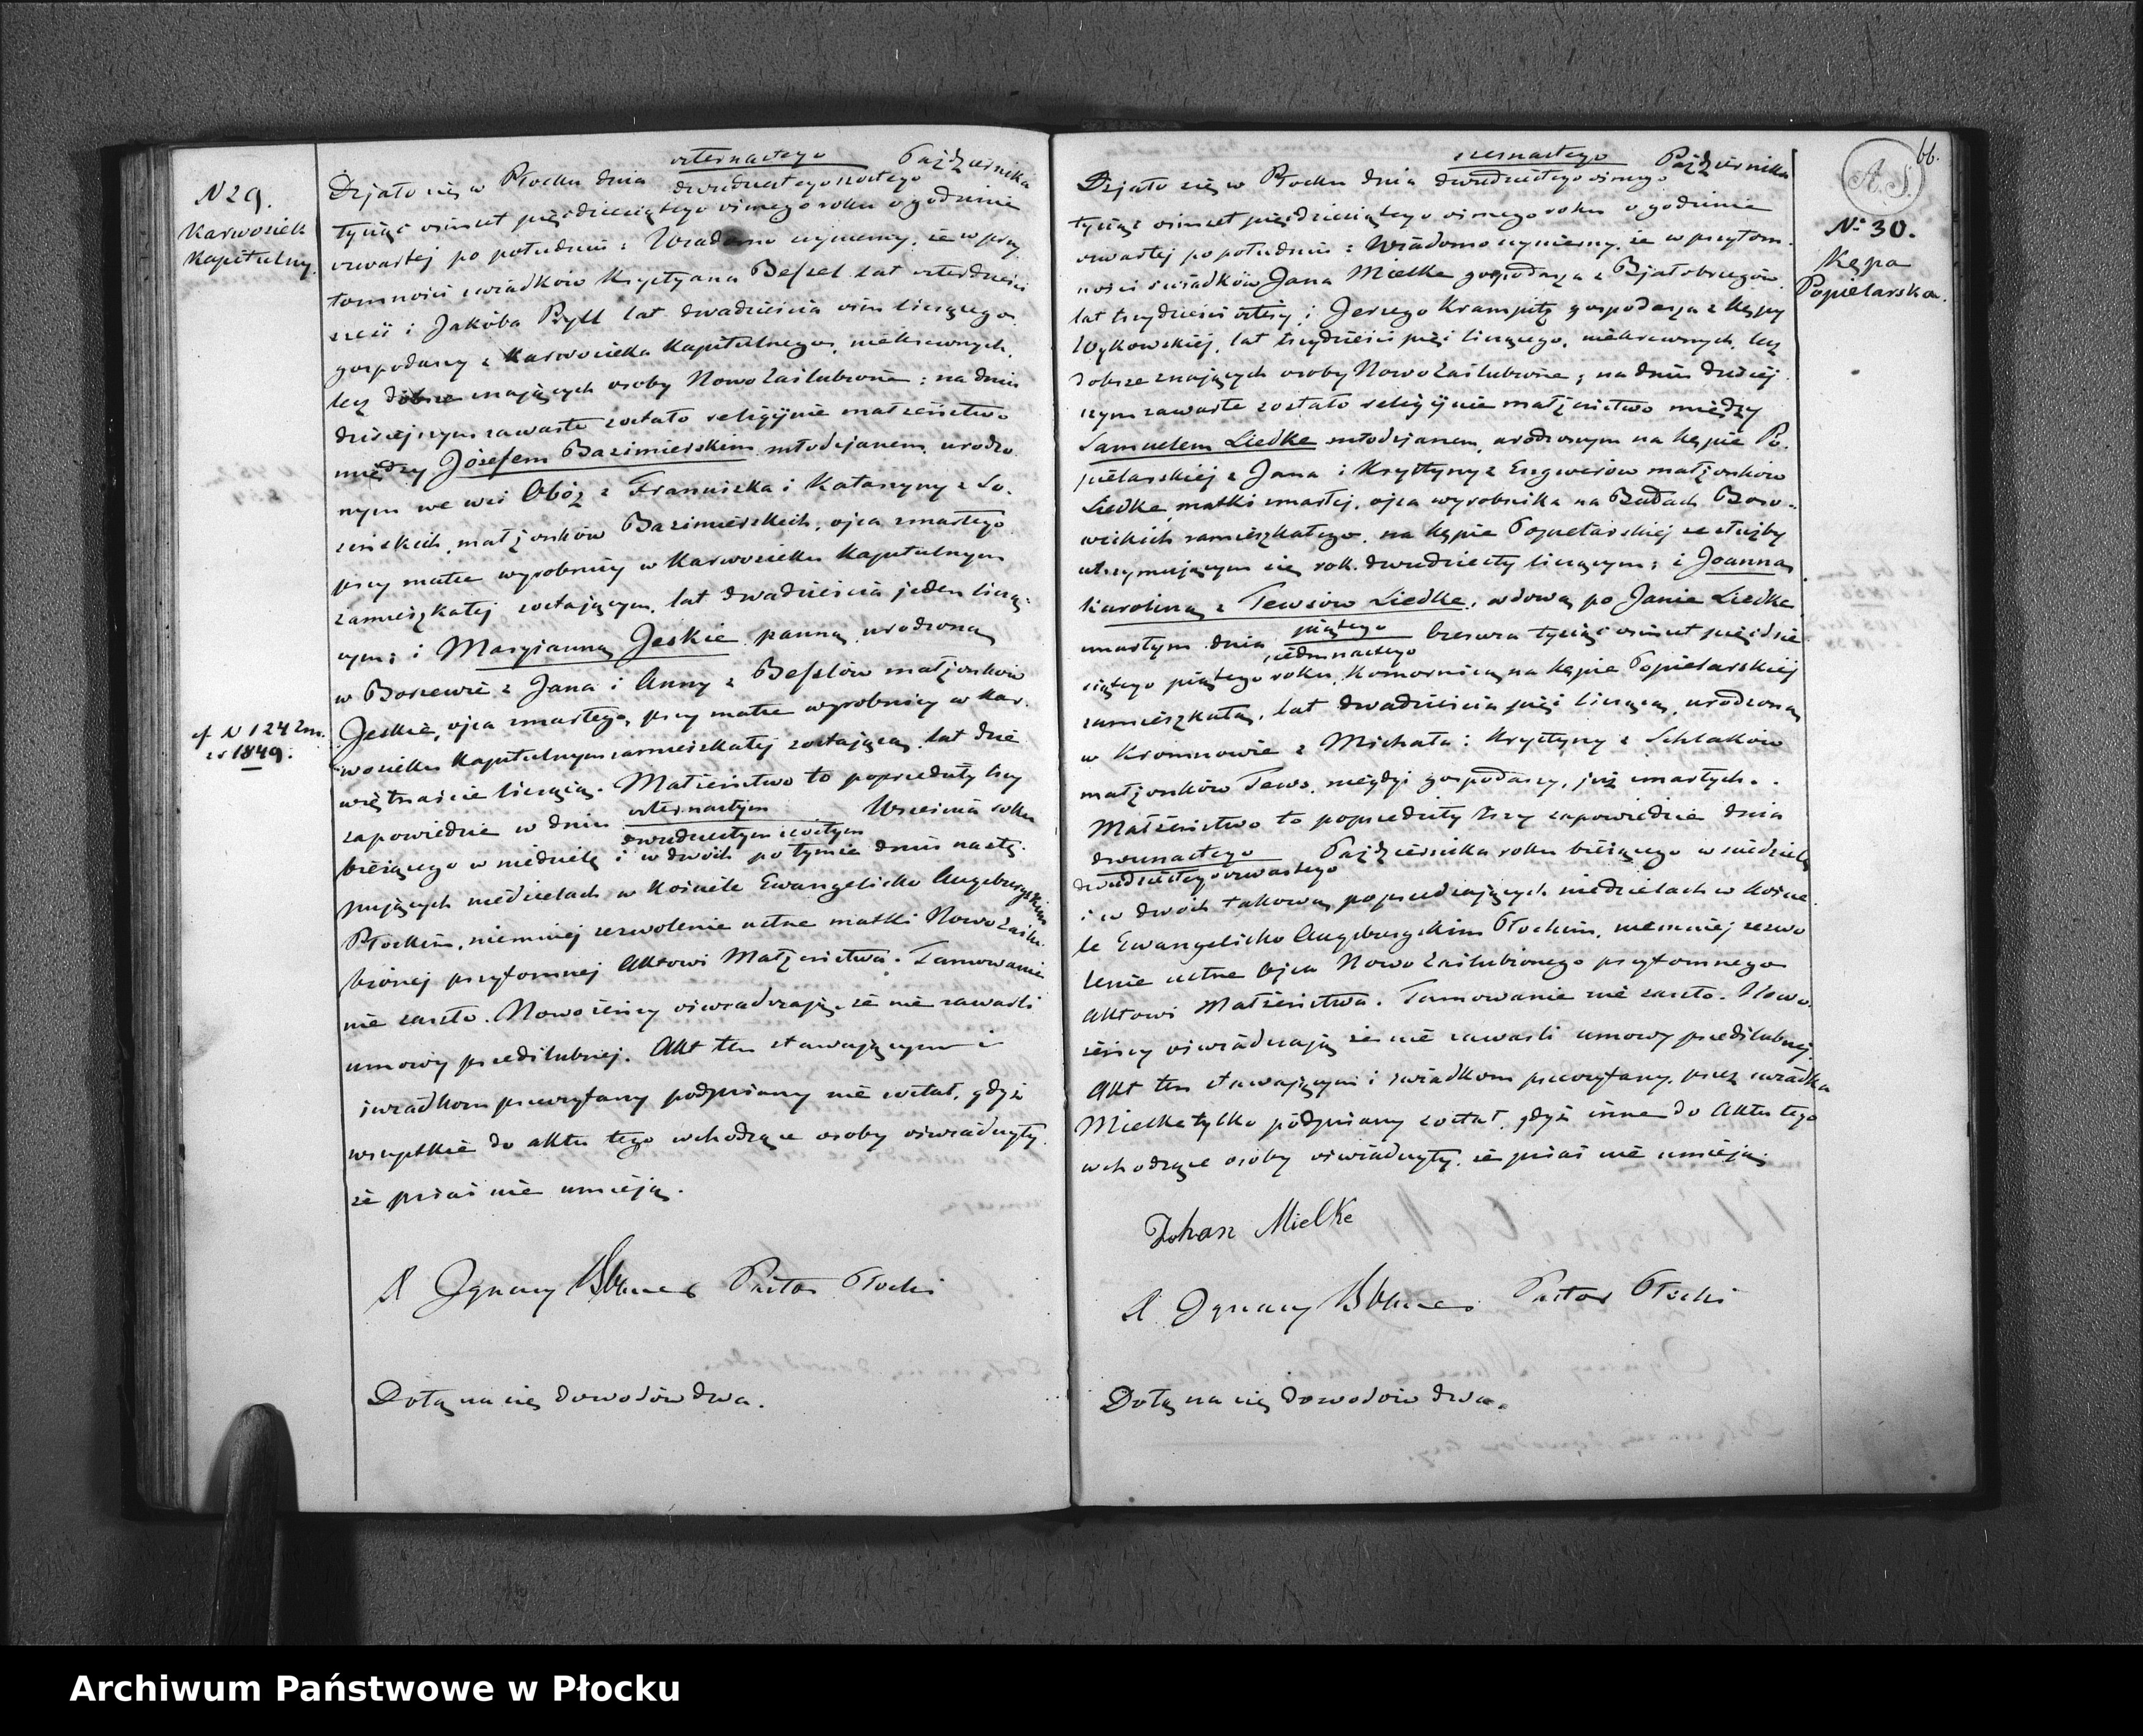 N 29.
Karwosiek
Kapitulny.
Działo się w Płocku dnia czternastego / dwudziestego szóstego Października
tysiąc ośmset pięćdziesiątego ósmego roku o godzinie
czwartej po południu: Wiadomo czynimy, że w przy
tomności świadków Krystyana Beszel lat czterdzieści
sześć i Jakóba Pryll lat dwadzieścia ośm liczącego
gospodarzy z Karwosieka Kapitulnego, niekrewnych,
lecz dobrze znających osoby Nowo Zaślubione: na dniu
dzisiejszym zawarte zostało religijnie małżeństwo
między Józefem Bazimierskim młodzianem, urodzo
nym we wsi Obóz z Franciszka i Katarzyny z So.
zińskich, małżonków Bazimierskich, ojca zmarłego
przy matce wyrobnicy w Karwosieku Kapitulnym
zamieszkałej zostającym, lat dwadzieścia jeden liczą:
cym; i Maryianną Jeskie panną, urodzoną
w Boszewie z Jana i Anny z Beszlów małżonków
Jeskie, ojca zmarłego, przy matce wyrobnicy w Kar.
wosieku Kapitulnym zamieszkałej zostającą, lat dzie
więtnaście liczącą. Małżeństwo to poprzedziły trzy
zapowiedzie w dniu czternastym / dwudziestym szóstym Września roku
bieżącego w niedzielę i w dwóch po tymże dniu nastę.
pujących niedzielach w Kościele Ewangelicko Augsburgskim
Płockim, niemniej zezwolenie ustne matki Nowo Zaślu.
bionej przytomnej Aktowi Małżeństwa. Tamowanie
nie zaszło. Nowożeńcy oświadczają, że nie zawarli
umowy przedślubnej. Akt ten stawającym i
świadkom przeczytany podpisany nie został, gdyż
wszystkie do aktu tego wchodzące osoby oświadczyły
że pisać nie umieją.
cf N 124 Zm.
zr 1849.
X Ignacy Boerner Pastor Płocki
Dołącza się dowodów dwa.
66.
A. S.
N: 30.
Kępa
Popielarska.
Działo się w Płocku dnia szesnastego / dwudziestego ósmego Października
tysiąc ośmset pięćdziesiątego ósmego roku o godzinie
czwartej po południu: Wiadomo czyniemy, że w przytom.
ności świadków Jana Mielke gospodarza z Białobrzegów
lat trzydzieści cztery i Jerzego Krampitz gospodarza z Kępy
Wykowskiej, lat trzydzieści pięć liczącego, niekrewnych, lecz
dobrze znających osoby Nowo Zaślubione; na dniu dzisiej
szym zawarte zostało religijnie małżeństwo między
Samuelem Liedke młodzianem, urodzonym na Kępie Po.
pielarskiej z Jana i Krystyny z Engwerów małżonków
Liedke, matki zmarłej, ojca wyrobnika na Budach Boro.
wickich zamieszkałego, na Kępie Popielarskiej ze służby
utrzymującym się, rok dwudziesty liczącym; i Joanną
Karoliną z Tewsów Liedke, wdową po Janie Liedke
zmarłym dnia piątego / siedmnastego Czerwca tysiąc ośmset pięćdzie
siątego piątego roku, Komornicą na Kępie Popielarskiej
zamieszkałą, lat dwadzieścia pięć liczącą, urodzoną
w Kromnowie z Michała i Krystyny z Schlaków
małżonków Tews, niegdyś gospodarzy, już zmarłych.
Małżeństwo to poprzedziły trzy zapowiedzie dnia
dwunastego / dwudziestego czwartego Października roku bieżącego w niedzielę
i w dwóch takową poprzedzających niedzielach w Koście
le Ewangelicko Augsburgskim Płockim, niemniej zezwo
lenie ustne Ojca Nowo Zaślubionego przytomnego
Aktowi Małżeństwa. Tamowanie nie zaszło. Nowo
żeńcy oświadczają że nie zawarli umowy przedślubnej.
Akt ten stawającym i świadkom przeczytany, przez świadka
Mielke tylko podpisany został, gdyż inne do Aktu tego
wchodzące osoby oświadczyły, że pisać nie umieją.
Johan Mielke
X. Ignacy Boerner Pastor Płocki
Dołącza się dowodów dwa.
Archiwum Państwowe w Płocku